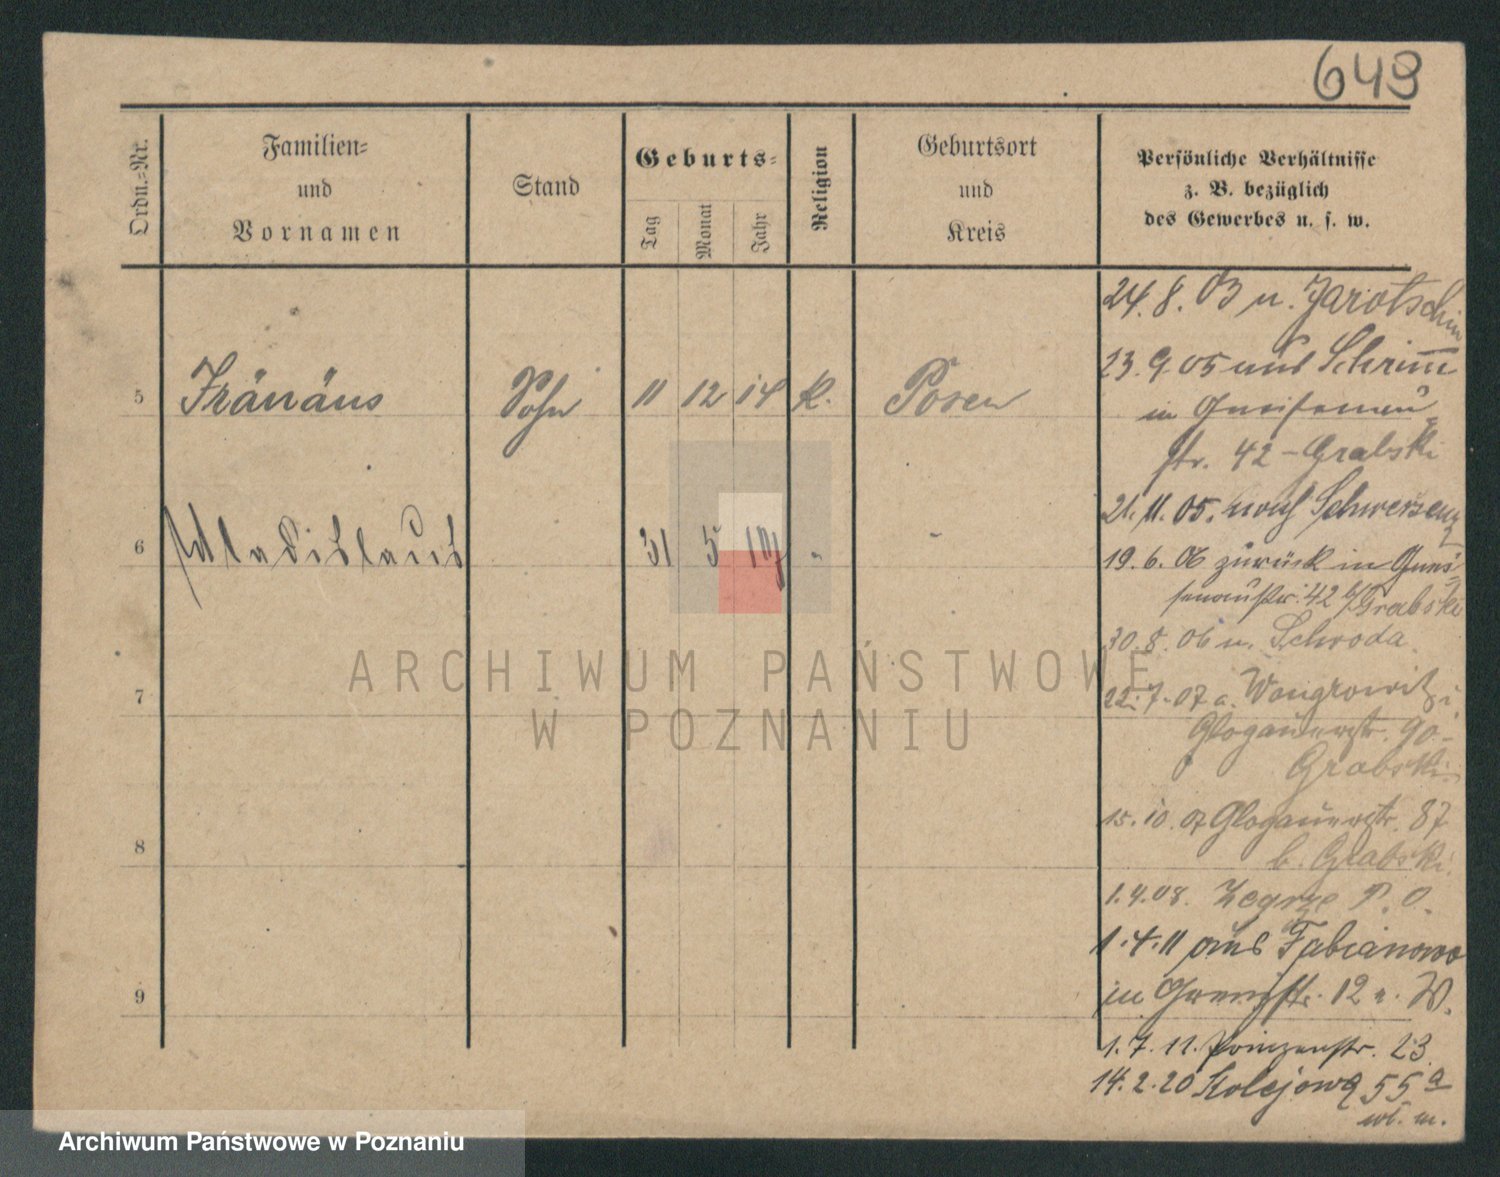 649
Ordn.-Nr.
Familien-
und
Vornamen
Stand
Geburts-
Tag
Monat
Jahr
Religion
Geburtsort
und
Kreis
Persönliche Verhältnisse
z. B. bezüglich
des Gewerbes u. s. w.
5 Iränäus Sohn 11 12 14 k. Posen
6 Wladislaus 31 5 19
7
8
9
24.8.03 n. Jarotschin
23.9.05 aus Schrimm
in Gneisenau
str. 42 - Grabski
21.11.05. nach Schwersenz
19.6.06 zurück in Gneis-
senaustr. 42 b/Grabski
30.8.06 n. Schroda.
22.7.07 a. Wongrowitz i.
Glogauerstr. 90-
Grabski
15.10.07 Glogauerstr. 87
b. Grabski.
1.4.08. Zegrze P. O.
1.4.11 aus Fabianowo
in 12 W.
1.7.11. Prinzenstr. 23
14.2.20 Kolejowa 55a
ARCHIWUM PAŃSTWOWE
W POZNANIU
Archiwum Państwowe w Poznaniu